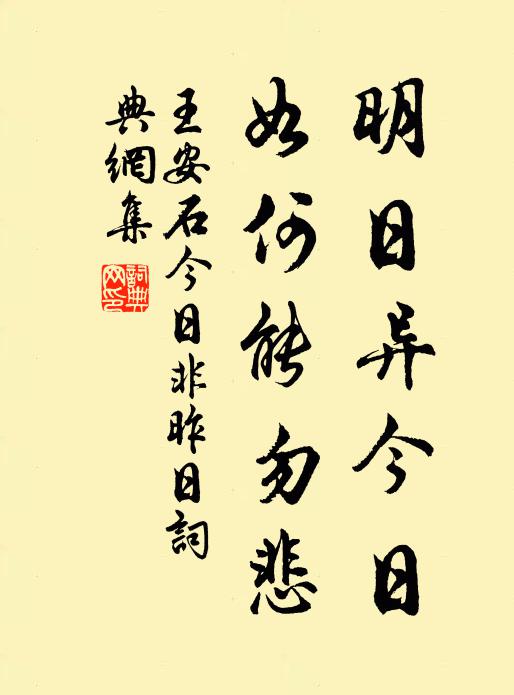 明日异今日
如何能勿悲
王安石今日非昨日詞
典網集
詞典网印